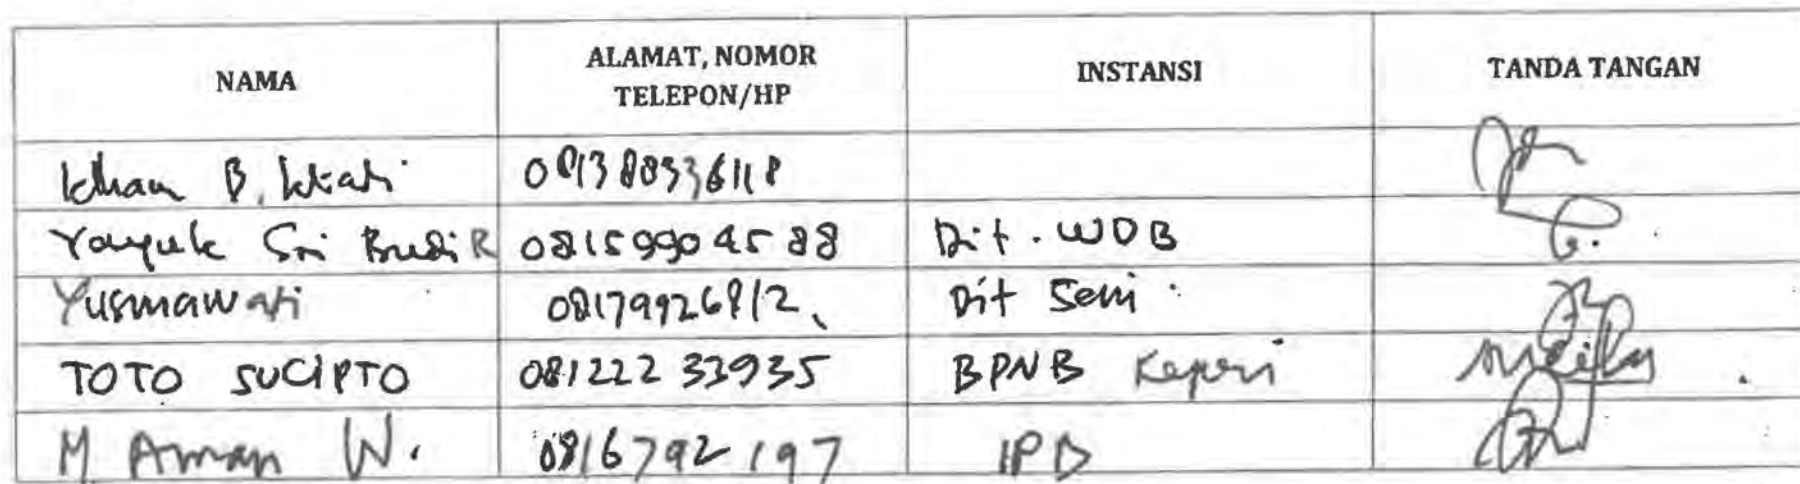 NAMA ALAMAT, NOMOR TELEPON/HP INSTANSI TANDA TANGAN
B. 081388336118
Sri Budi R 081599904588 Dit. WDB
Yusmawati 08179926812, Dit Seni
TOTO SUCIPTO 081222 33935 BPNB Kepri
M Aman W. 0816792197 IPB